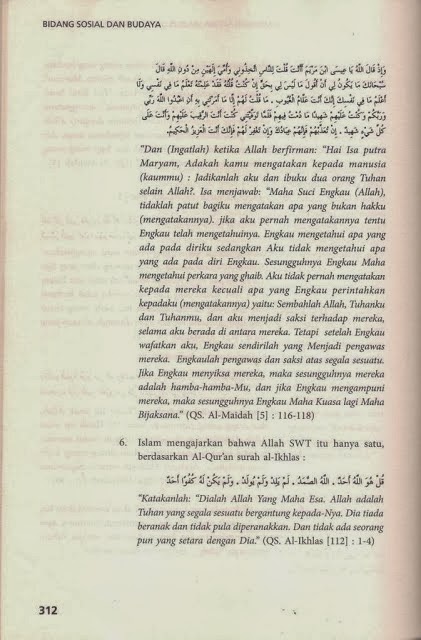 BIDANG SOSIAL DAN BUDAYA
وَإِذْ قَالَ اللَّهُ يَا عِيسَى ابْنَ مَرْيَمَ أَأَنْتَ قُلْتَ لِلنَّاسِ اتَّخِذُونِي وَأُمِّيَ إِلَهَيْنِ مِنْ دُونِ اللَّهِ قَالَ
سُبْحَانَكَ مَا يَكُونُ لِي أَنْ أَقُولَ مَا لَيْسَ لِي بِحَقٍّ إِنْ كُنْتُ قُلْتُهُ فَقَدْ عَلِمْتَهُ تَعْلَمُ مَا فِي نَفْسِي وَلَا
أَعْلَمُ مَا فِي نَفْسِكَ إِنَّكَ أَنْتَ عَلَّامُ الْغُيُوبِ . مَا قُلْتُ لَهُمْ إِلَّا مَا أَمَرْتَنِي بِهِ أَنِ اعْبُدُوا اللَّهَ رَبِّي
وَرَبَّكُمْ وَكُنْتُ عَلَيْهِمْ شَهِيدًا مَا دُمْتُ فِيهِمْ فَلَمَّا تَوَفَّيْتَنِي كُنْتَ أَنْتَ الرَّقِيبَ عَلَيْهِمْ وَأَنْتَ عَلَى
كُلِّ شَيْءٍ شَهِيدٌ . إِنْ تُعَذِّبْهُمْ فَإِنَّهُمْ عِبَادُكَ وَإِنْ تَغْفِرْ لَهُمْ فَإِنَّكَ أَنْتَ الْعَزِيزُ الْحَكِيمُ.
"Dan (Ingatlah) ketika Allah berfirman: "Hai Isa putra
Maryam, Adakah kamu mengatakan kepada manusia
(kaummu) : Jadikanlah aku dan ibuku dua orang Tuhan
selain Allah?. Isa menjawab: "Maha Suci Engkau (Allah),
tidaklah patut bagiku mengatakan apa yang bukan hakku
(mengatakannya). jika aku pernah mengatakannya tentu
Engkau telah mengetahuinya. Engkau mengetahui apa yang
ada pada diriku sedangkan Aku tidak mengetahui apa
yang ada pada diri Engkau. Sesungguhnya Engkau Maha
mengetahui perkara yang ghaib. Aku tidak pernah mengatakan
kepada mereka kecuali apa yang Engkau perintahkan
kepadaku (mengatakannya) yaitu: Sembahlah Allah, Tuhanku
dan Tuhanmu, dan aku menjadi saksi terhadap mereka,
selama aku berada di antara mereka. Tetapi setelah Engkau
wafatkan aku, Engkau sendirilah yang Menjadi pengawas
mereka. Engkaulah pengawas dan saksi atas segala sesuatu.
Jika Engkau menyiksa mereka, maka sesungguhnya mereka
adalah hamba-hamba-Mu, dan jika Engkau mengampuni
mereka, maka sesungguhnya Engkau Maha Kuasa lagi Maha
Bijaksana." (QS. Al-Maidah [5] : 116-118)
6. Islam mengajarkan bahwa Allah SWT itu hanya satu,
berdasarkan Al-Qur'an surah al-Ikhlas :
قُلْ هُوَ اللَّهُ أَحَدٌ . اللَّهُ الصَّمَدُ . لَمْ يَلِدْ وَلَمْ يُولَدْ . وَلَمْ يَكُنْ لَهُ كُفُوًا أَحَدٌ
"Katakanlah: "Dialah Allah Yang Maha Esa. Allah adalah
Tuhan yang segala sesuatu bergantung kepada-Nya. Dia tiada
beranak dan tidak pula diperanakkan. Dan tidak ada seorang
pun yang setara dengan Dia." (QS. Al-Ikhlas [112] : 1-4)
312